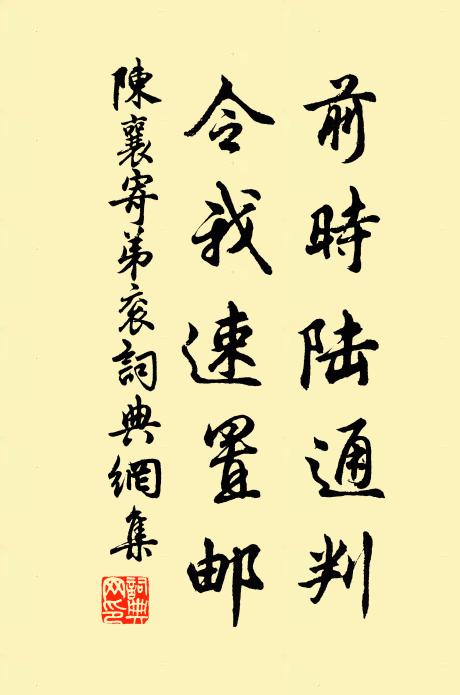 前時陆通判
令我速置邮
陳襄寄弟衮詞典網集
詞典网印